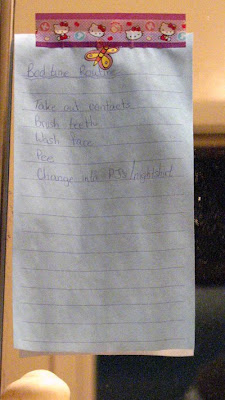 Bedtime Routine
Take out contacts
Brush teeth
Wash face
Pee
Change into PJs/nightshirt